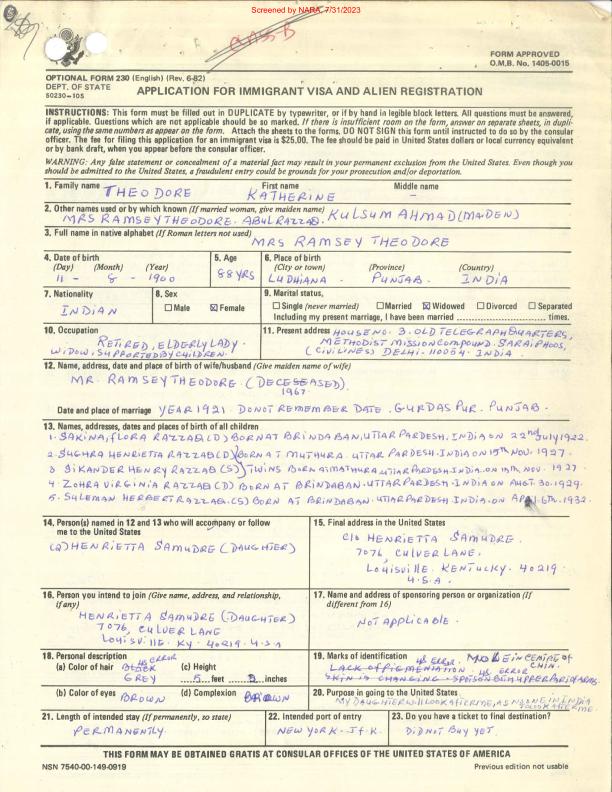 Screened by NARA, 7/31/2023
FORM APPROVED
O.M.B. No. 1405-0015
OPTIONAL FORM 230 (English) (Rev. 6-82)
DEPT. OF STATE
50230-105
APPLICATION FOR IMMIGRANT VISA AND ALIEN REGISTRATION
INSTRUCTIONS: This form must be filled out in DUPLICATE by typewriter, or if by hand in legible block letters. All questions must be answered,
if applicable. Questions which are not applicable should be so marked. If there is insufficient room on the form, answer on separate sheets, in dupli-
cate, using the same numbers as appear on the form. Attach the sheets to the forms. DO NOT SIGN this form until instructed to do so by the consular
officer. The fee for filing this application for an immigrant visa is $25.00. The fee should be paid in United States dollars or local currency equivalent
or by bank draft, when you appear before the consular officer.
WARNING: Any false statement or concealment of a material fact may result in your permanent exclusion from the United States. Even though you
should be admitted to the United States, a fraudulent entry could be grounds for your prosecution and/or deportation.
1. Family name First name Middle name
THEODORE KATHERINE –
2. Other names used or by which known (If married woman, give maiden name)
MRS RAMSEY THEODORE. ABUL RAZZAQ. KULSUM AHMAD (MAIDEN)
3. Full name in native alphabet (If Roman letters not used)
MRS RAMSEY THEODORE
4. Date of birth
(Day) (Month) (Year)
11 - 8 - 1900
5. Age
88 YRS
6. Place of birth
(City or town) (Province) (Country)
LUDHIANA. PUNJAB. INDIA
7. Nationality
INDIAN
8. Sex
☐ Male ☒ Female
9. Marital status,
☐ Single (never married) ☐ Married ☒ Widowed ☐ Divorced ☐ Separated
Including my present marriage, I have been married ........ times.
10. Occupation
RETIRED, ELDERLY LADY.
WIDOW, SUPPORTED BY CHILDREN.
11. Present address HOUSE NO. 3. OLD TELEGRAPH QUARTERS,
METHODIST MISSION COMPOUND. SARAI PHOOS,
(CIVIL LINES) DELHI. 110054. INDIA.
12. Name, address, date and place of birth of wife/husband (Give maiden name of wife)
MR. RAMSEY THEODORE. (DECESEASED).
1967.
Date and place of marriage YEAR 1921. DO NOT REMEMBER DATE. GURDASPUR. PUNJAB.
13. Names, addresses, dates and places of birth of all children
1. SAKINA, FLORA RAZZAQ (D) BORN AT BRINDABAN, UTTAR PARDESH. INDIA ON 22nd JULY 1922.
2. SUGHRA HENRIETTA RAZZAQ (D) BORN AT MUTHURA. UTTAR PARDESH. INDIA ON 19th NOV. 1927.
3 SIKANDER HENRY RAZZAQ (S) TWINS BORN AT MATHURA UTTAR PARDESH. INDIA. ON 19th NOV. 1927
4. ZOHRA VIRGINIA RAZZAQ (D) BORN AT BRINDABAN. UTTAR PARDESH. INDIA ON AUGT. 30. 1929.
5. SULEMAN HERBERT RAZZAQ. (S) BORN AT BRINDABAN. UTTAR PARDESH. INDIA. ON APRIL 6TH. 1932.
14. Person(s) named in 12 and 13 who will accompany or follow
me to the United States
(2) HENRIETTA SAMUDRE (DAUGHTER)
15. Final address in the United States
C/O HENRIETTA SAMUDRE.
7076, CULVER LANE,
LOUISVILLE. KENTUCKY. 40219.
U.S.A.
16. Person you intend to join (Give name, address, and relationship,
if any)
HENRIETTA SAMUDRE (DAUGHTER)
7076, CULVER LANE
LOUISVILLE. KY. 40219. U.S.A
17. Name and address of sponsoring person or organization (If
different from 16)
NOT APPLICABLE.
18. Personal description
(a) Color of hair BLACK ERROR
GREY
(c) Height
5 feet 3 inches
(b) Color of eyes BROWN
(d) Complexion BROWN
19. Marks of identification ERROR. MOLE IN CENTRE OF
CHIN.
LACK OF PIGMENTATION. ERROR
20. Purpose in going to the United States
MY DAUGHTER WILL LOOK AFTER ME, AS NO ONE IN INDIA
TO LOOK AFTER ME.
21. Length of intended stay (If permanently, so state)
PERMANENTLY.
22. Intended port of entry
NEW YORK. J.F.K.
23. Do you have a ticket to final destination?
DID NOT BUY YET.
THIS FORM MAY BE OBTAINED GRATIS AT CONSULAR OFFICES OF THE UNITED STATES OF AMERICA
NSN 7540-00-149-0919 Previous edition not usable